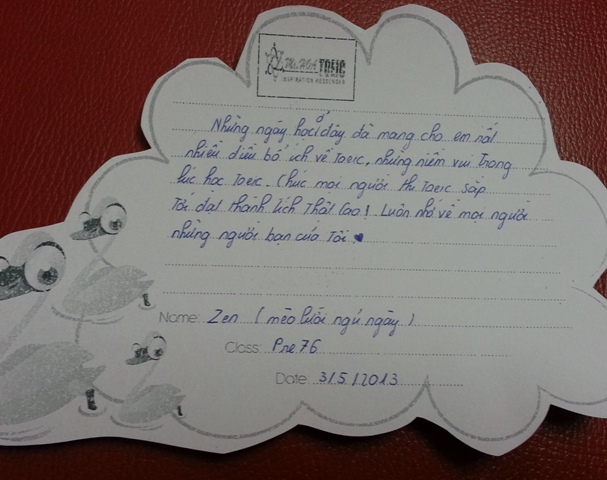 Ms. Hoa TOEIC
INSPIRATION MESSENGER
Những ngày học ở đây đã mang cho em rất
nhiều điều bổ ích về Toeic, những niềm vui Trong
lúc học Toeic. Chúc mọi người thi Toeic sắp
Tới đạt thành tích Thật Cao! Luôn nhớ về mọi người
những người bạn của Tôi
Name: Zen (mèo lười ngủ ngày)
Class: Pre 76
Date: 31.5.1.2013